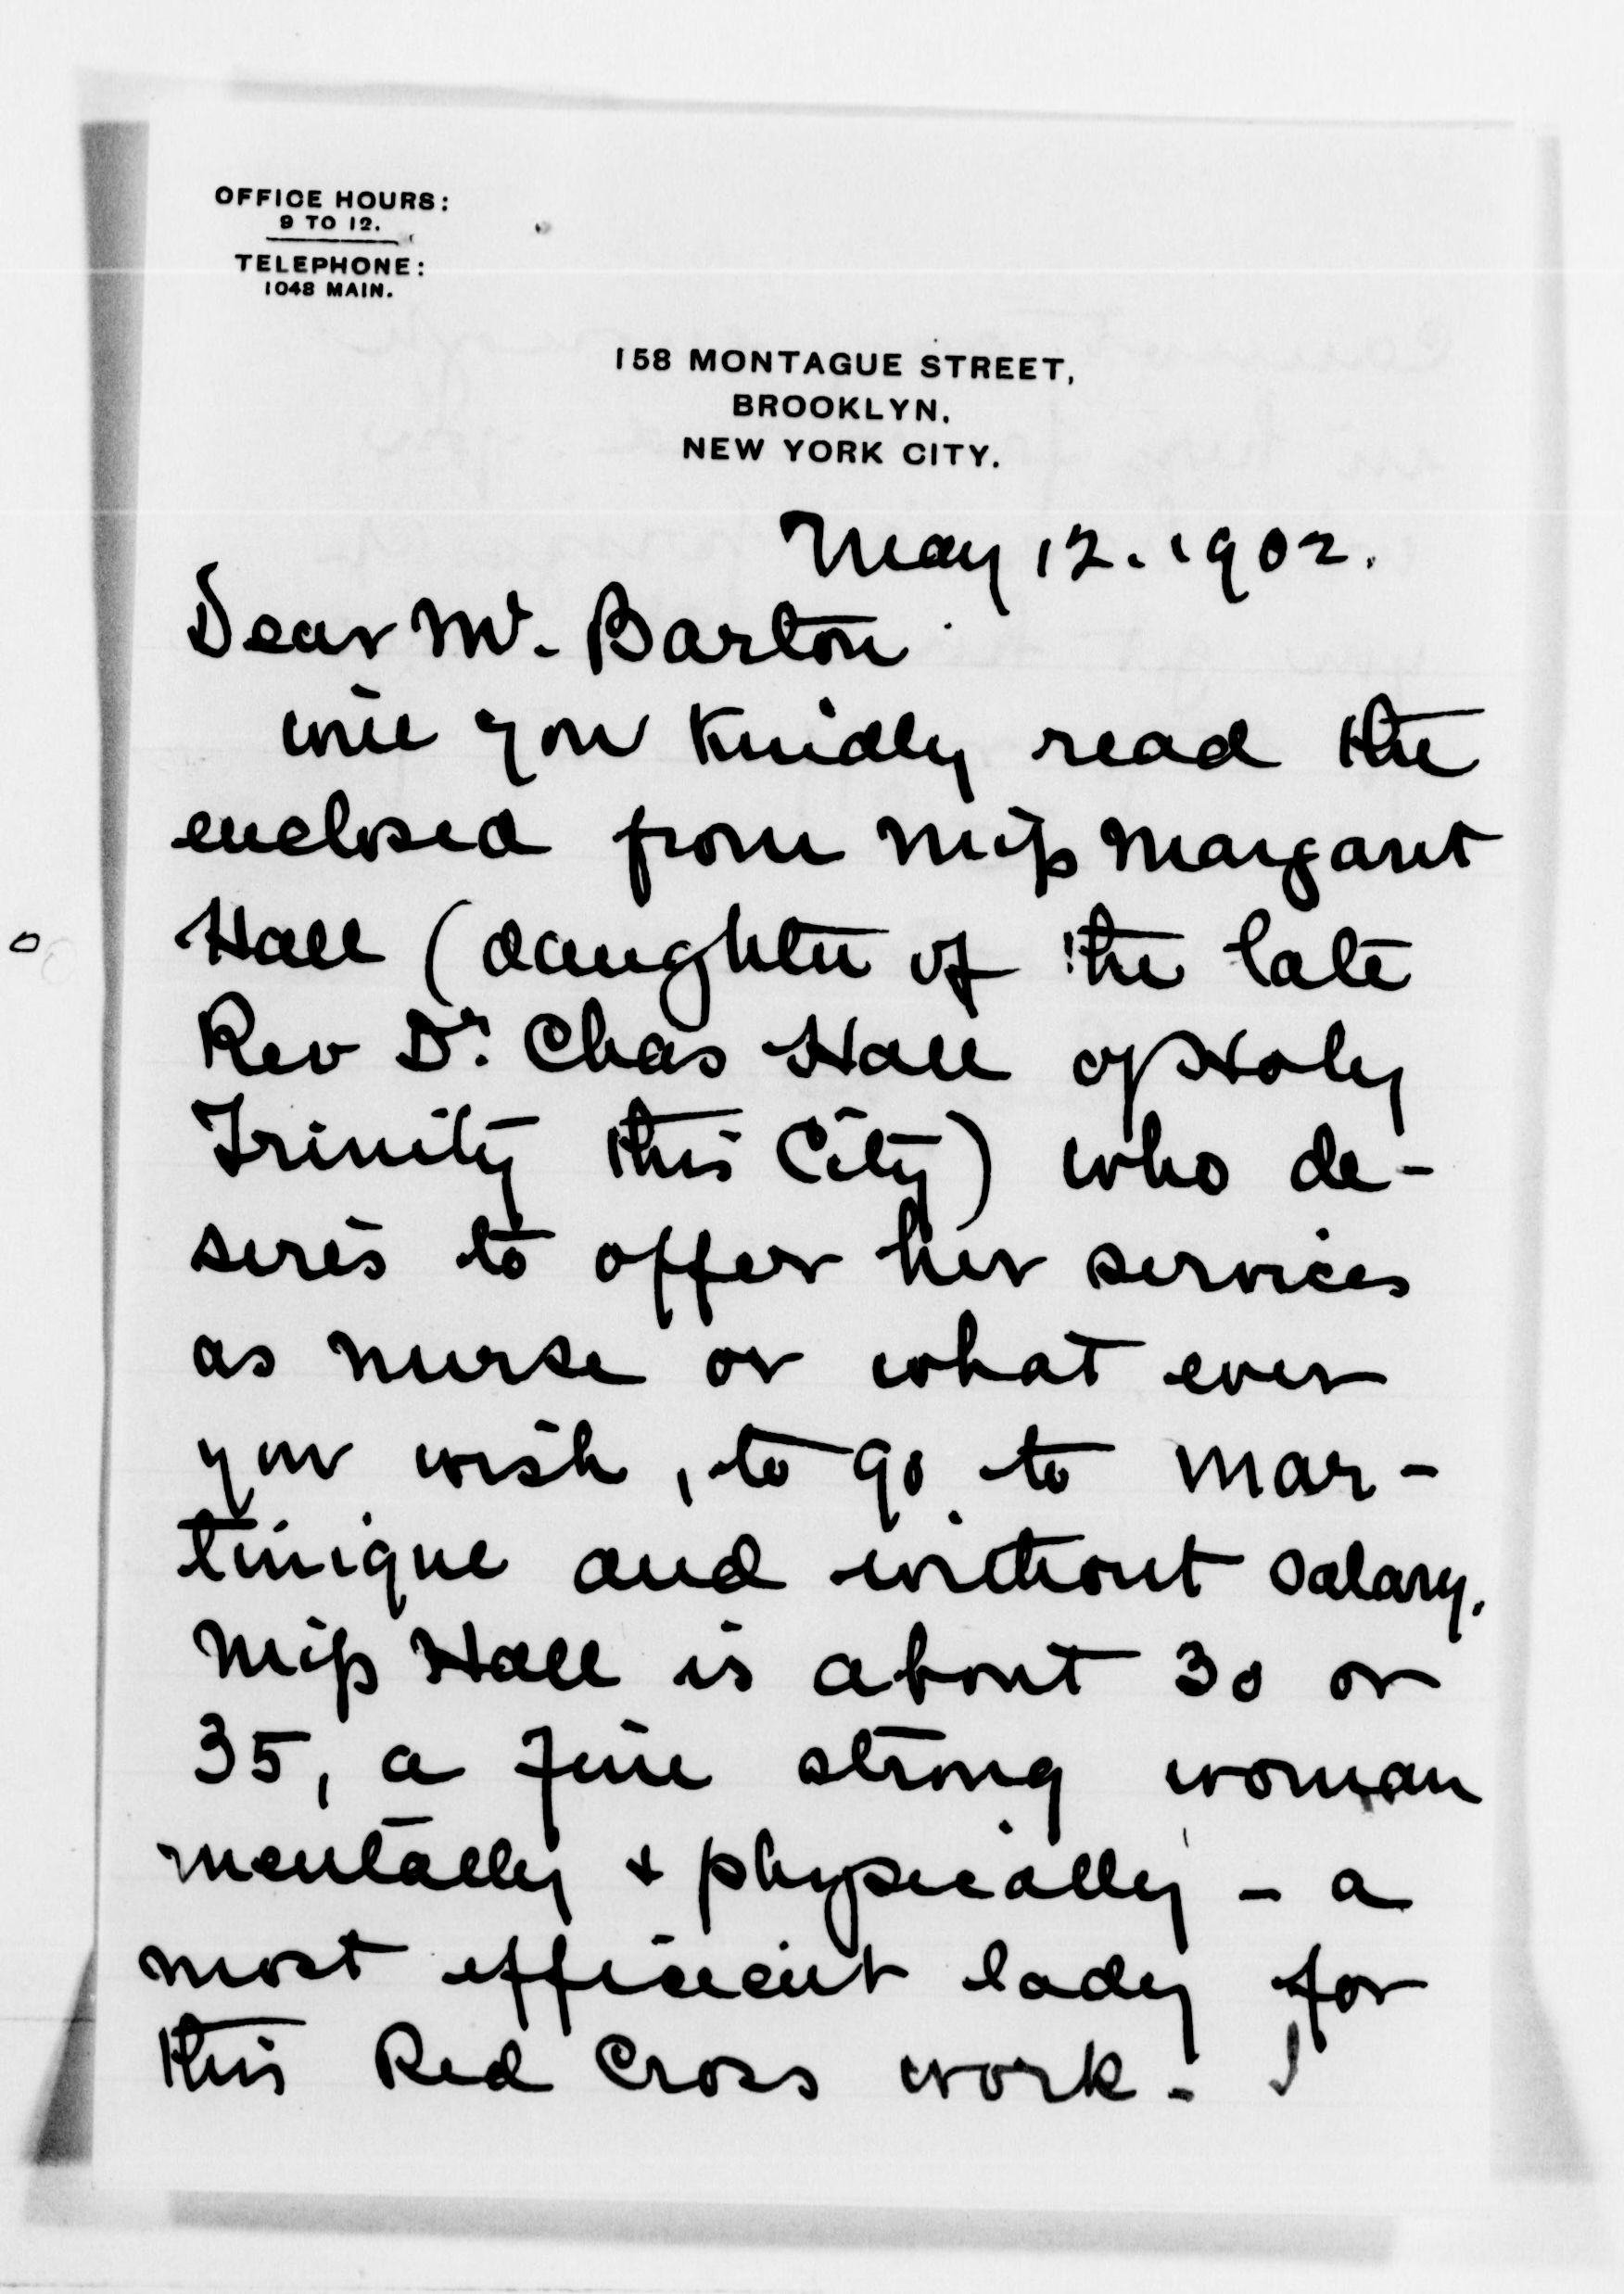 OFFICE HOURS:
9 TO 12.
TELEPHONE:
1048 MAIN.
158 MONTAGUE STREET,
BROOKLYN.
NEW YORK CITY.
May 12. 1902.
Dear Mr. Barton
will you kindly read the
enclosed from Miss Margaret
Hall (daughter of the late
Rev Dr. Chas Hall of Holy
Trinity this City) who de-
sires to offer her services
as nurse or what ever
you wish, to go to Mar-
tinique and without salary.
Miss Hall is about 30 or
35, a fine strong woman
mentally & physically - a
most efficient lady for
this Red Cross work. I